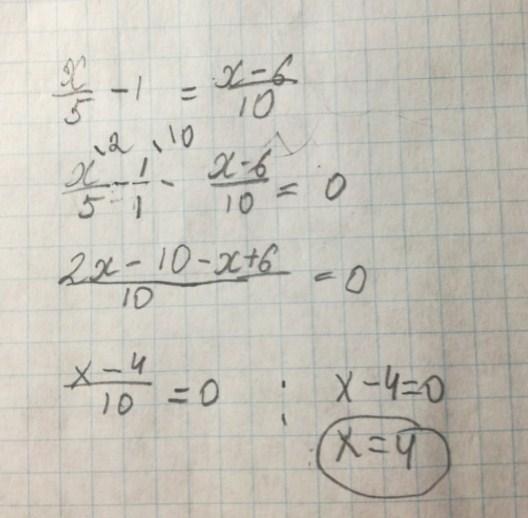 x/5 - 1 = x-6/10
x\2/5 - 1\10/1 - x-6/10 = 0
2x - 10 - x+6/10 = 0
x-4/10 = 0 ; x-4=0
x=4